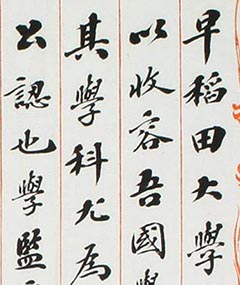 早稻田大學
以收容吾國學
其學科尤為
公認也學監